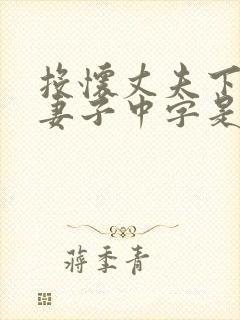 投怀丈夫下
妻子中字是
蒋季青